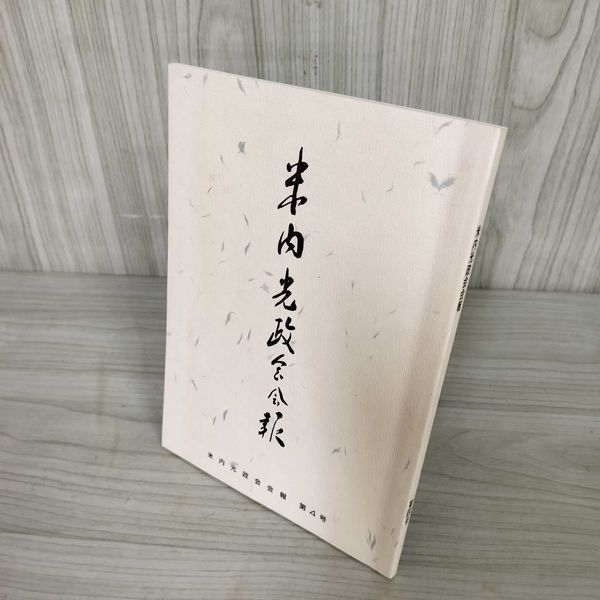 米内光政会会報
米内光政会会報 第4号
米内光政会会報